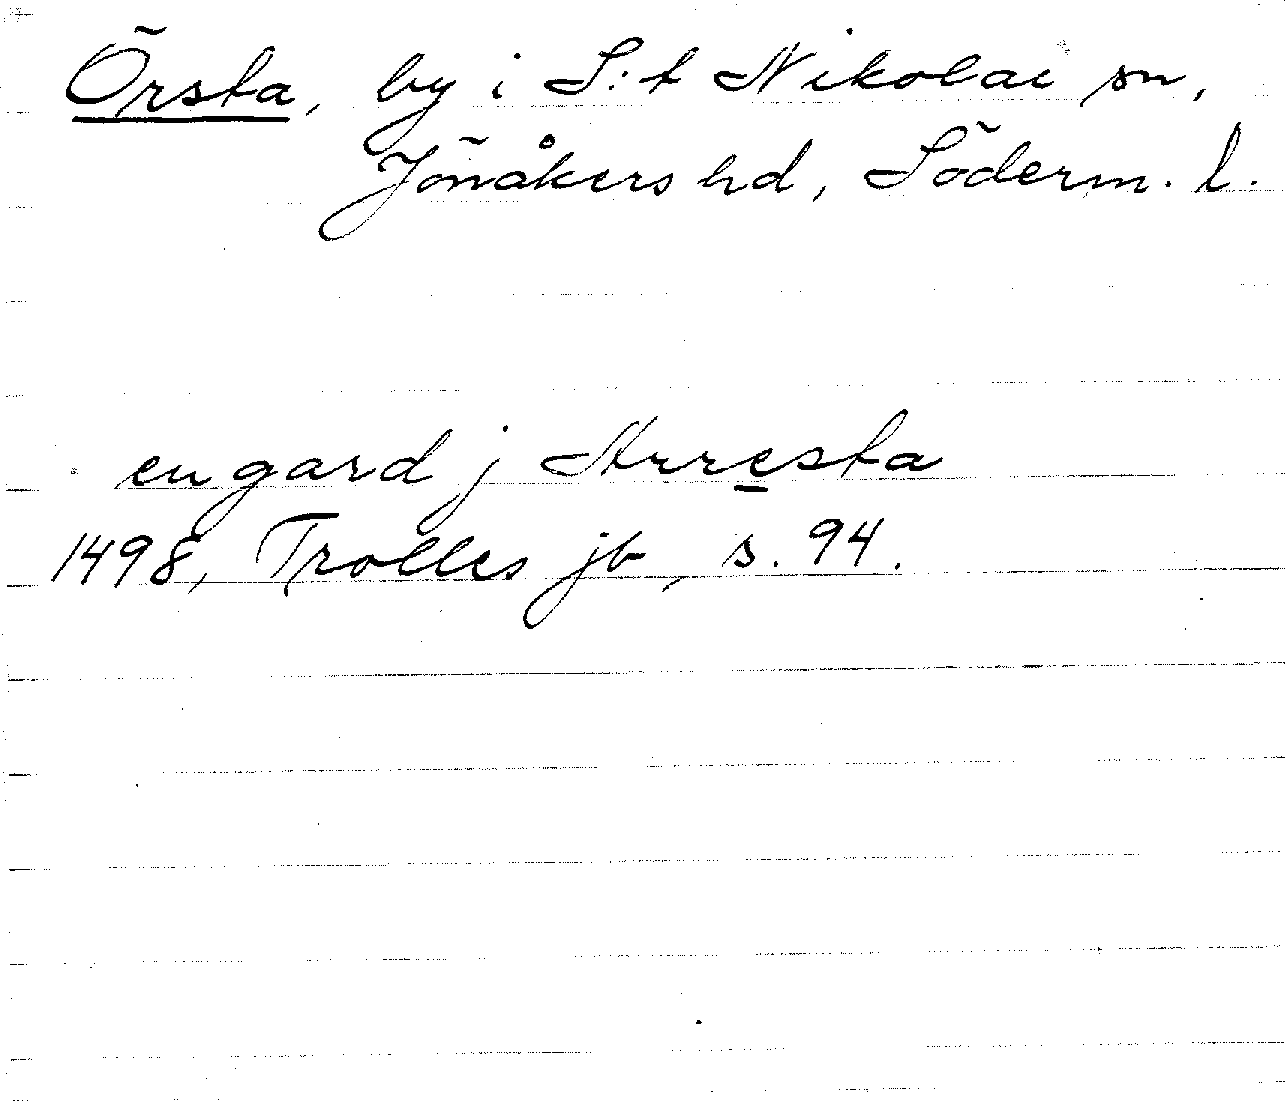 Örsta, by i S:t Nikolai sn,
Jönåkers hd, Söderm. l.
en gard j Arresta
1498, Trolles jb, s. 94.